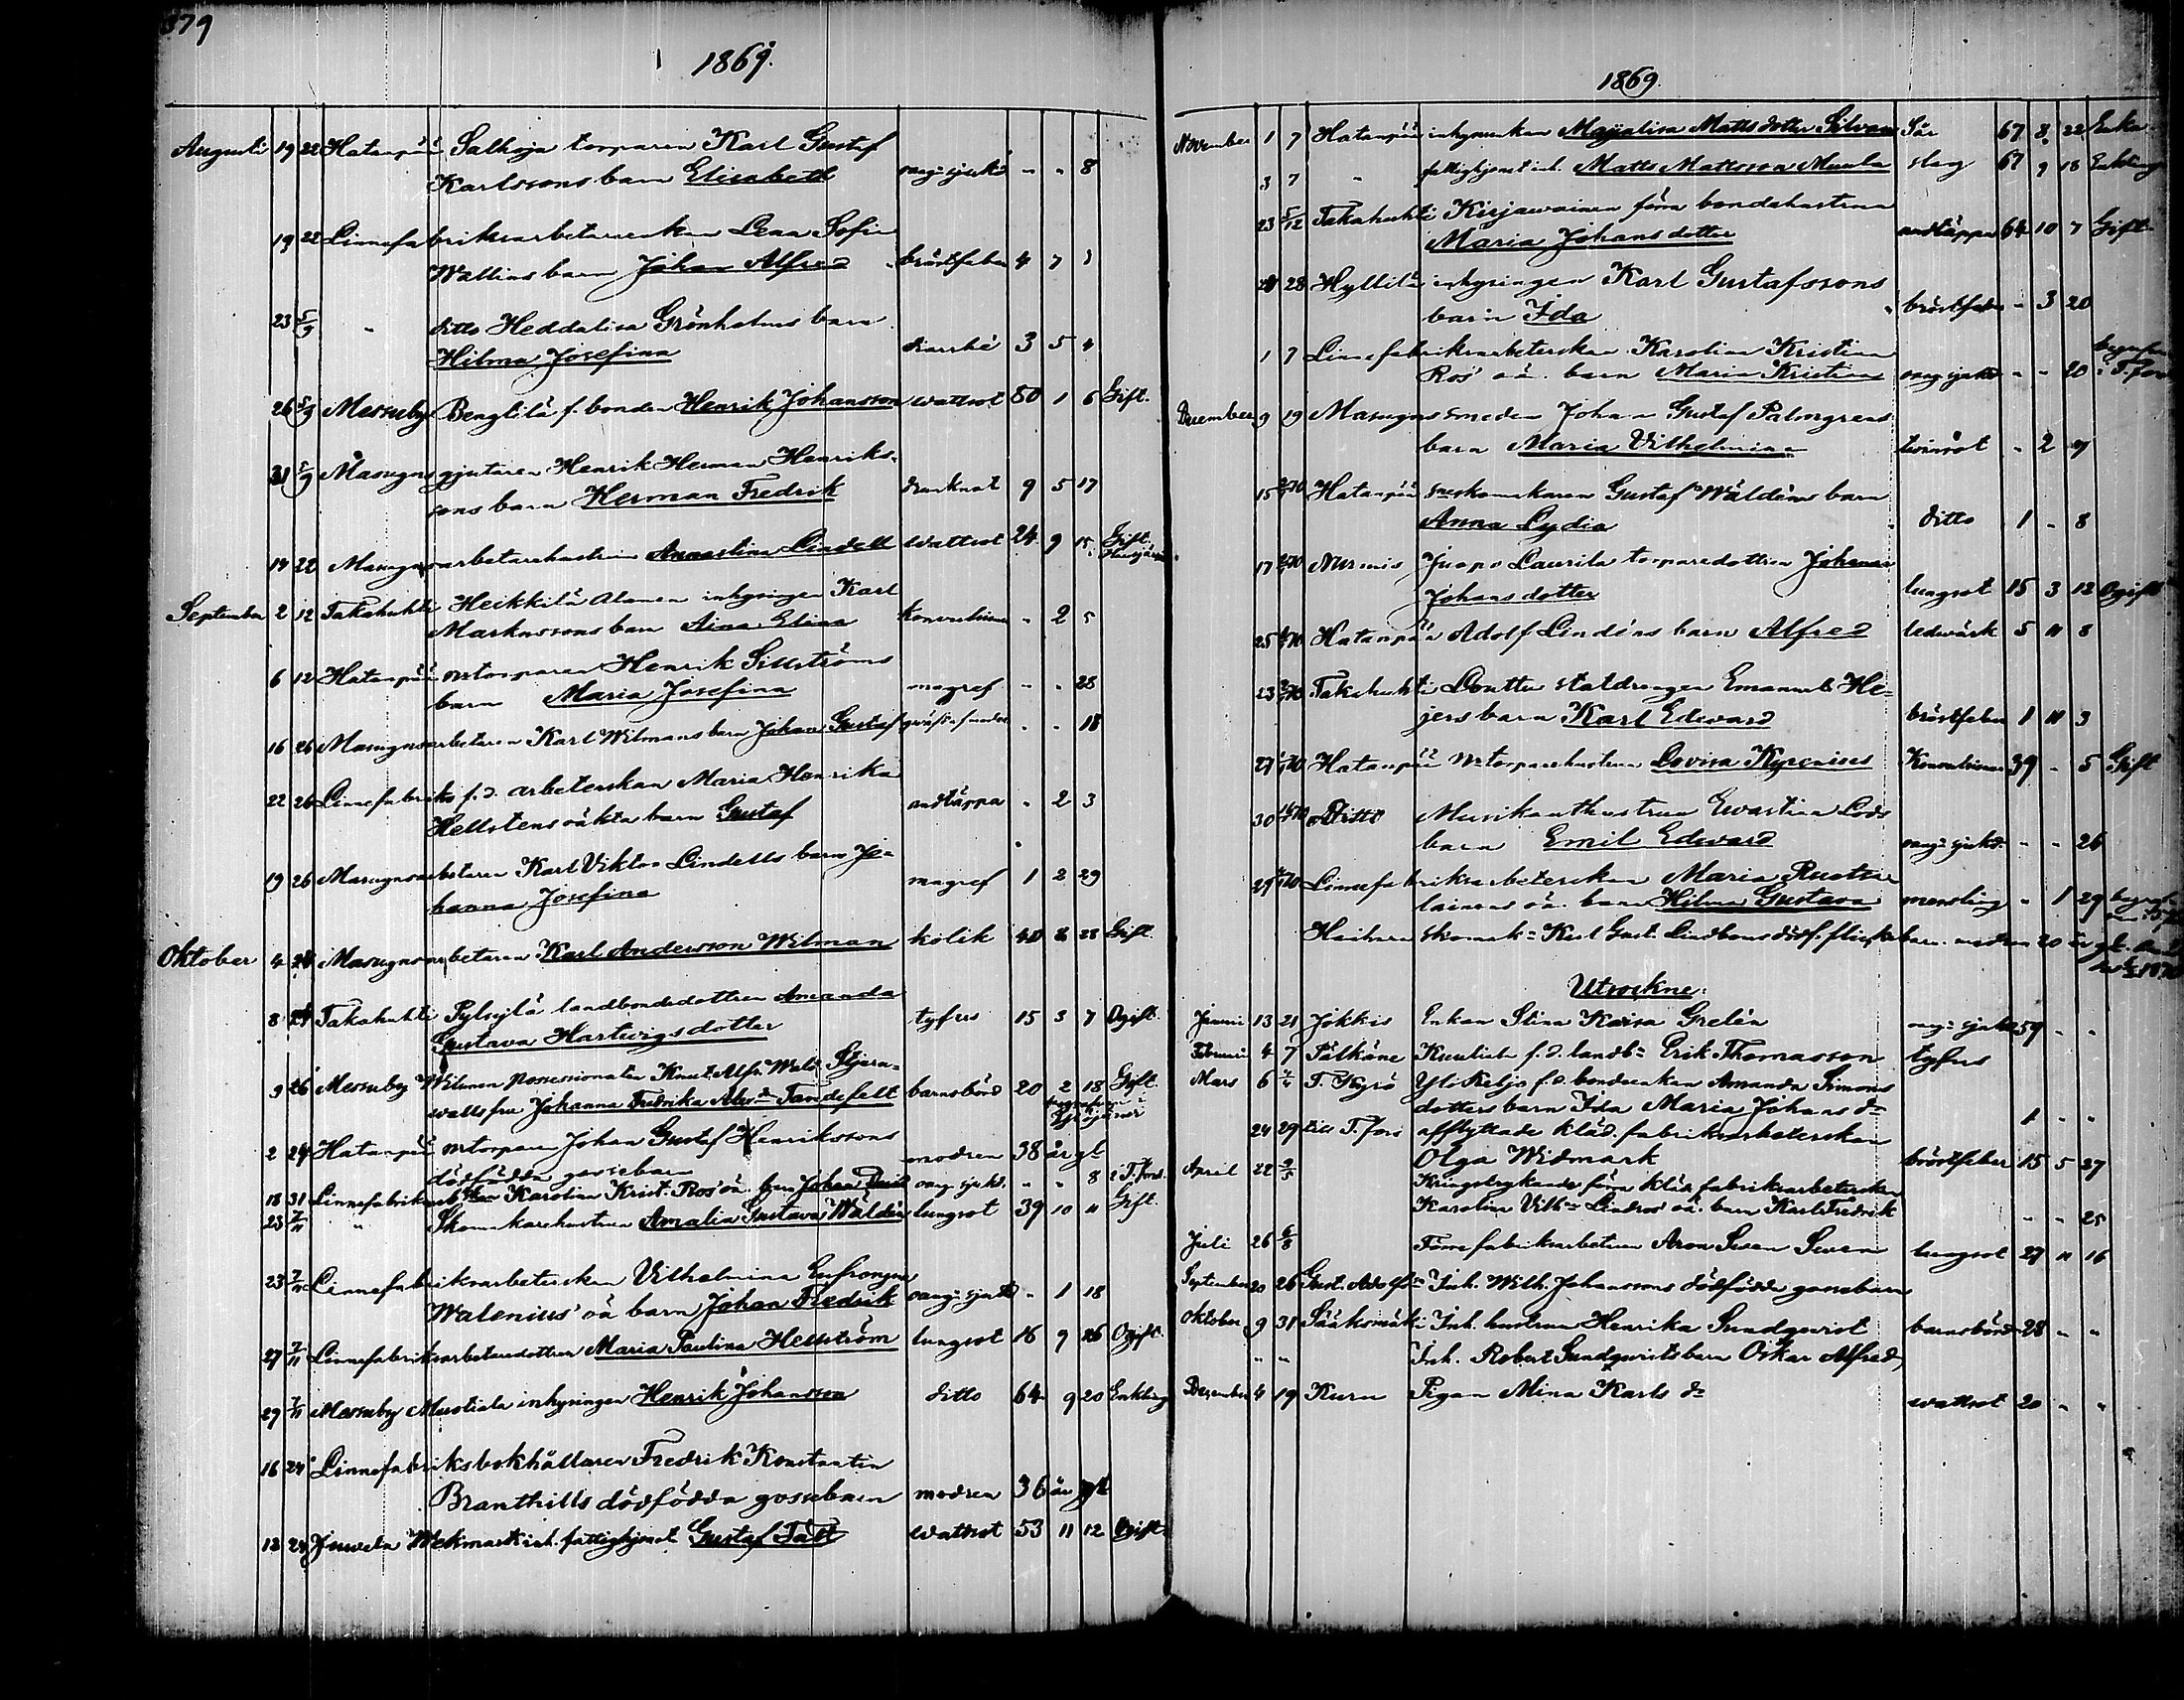 379
1869.
Augusti 19 22 Hatanpää Salhoja torparen Karl Gustaf
Karlssons barn Elisabeth " " 8
19 22 Linnefabriksarbetareenkan Lena Sofia
Wallins barn Johan Alfred bröstfeber 4 7
23 5/9 " ditto Heddalisa Grönholms barn
Hilma Josefina diarrhé 3 5
26 5/9 Messuby Bengtilä f. bonden Henrik Johansson wattsot 80 1 6 Gift.
31 5/9 Masugnsgjutaren Henrik Herman Henriks-
sons barn Herman Fredrik 9 5 17
14 22 Masugnsarbetarehustrun Annastina Lindell wattsot 24 9 15 Gift
September 2 12 Takahuhti Heikkilä Alanen inhysingen Karl
Markussons barn Aina Elina konvulsioner - 2 5
6 12 Hatanpää mtorparen Henrik Sillströms
barn Maria Josefina magref - - 28
16 26 Masugnsarbetaren Karl Wilmans barn Johan Gustaf - - 18
22 26 Linnefabriks f.d. arbeterskan Maria Henrika
Hellstens oäkta barn Gustaf andtäppa - 2 3
19 26 Masugnsarbetaren Karl Viktor Lindells barn Jo-
hanna Josefina magref 1 2 29
Oktober 4 24 Masugnsarbetaren Karl Andersson Wilman kolik 40 8 28 Gift.
8 24 Takahuhti Pylsylä landbondedottren Amanda
Gustava Hartvigsdotter tyfus 15 3 7 Ogift.
9 26 Messuby Wilunen possessionaten Knut Alfr. Wald. Stjern-
walls fru Johanna Fredrika Alex:dra Tandefelt barnsbörd 20 2 18 Gift
2 24 Hatanpää mtorparen Johan Gustaf Henrikssons
dödfödda gossebarn modren 38 år gl
18 31 Linnefabriksarb:skan Karolina Krist. Ros' oä. barn Johan - - 8 i T.fors.
23 7/11 " Skomakarehustrun Amalia Gustava Waldén lungsot 39 10 11 Gift.
23 7/11 Linnefabriksarbeterskan Vilhelmina Eufrosyna
Walenius' oä barn Johan Fredrik - 1 18
27 7/11 Linnefabriksarbetaredottren Maria Paulina Hellström lungsot 16 9 26 Ogift.
27 7/11 Messuby Mustiala inhysingen Henrik Johansson ditto 64 9 20 Enkling
16 24 Linnefabriksbokhållaren Fredrik Konstantin
Branthills dödfödda gossebarn modren 36 år gl
12 24 Juvela inh. fattighjonet Gustaf Tått wattsot 53 11 12 Ogift.
1869.
November 1 7 Hatanpää inhysenkan Majalisa Mattsdotter Silvan Sår 67 8 22 Enka
3 7 " fattighjonet inh. Matts Mattsson Muula slag 67 9 18 Enkling
23 5/12 Takahuhti Kirjawainen förra bondehustrun
Maria Johansdotter andtäppa 64 10 7 Gift
28 Hyllilä inhysingen Karl Gustafssons
barn Ida bröstfeber - 3 20
1 7 Linnefabriksarbeterskan Karolina Kristina
Ros' oä. barn Maria Kristina - - 20 i T.fors
December 9 19 Masugnssmeden Johan Gustaf Palmgrens
barn Maria Vilhelmina - 2
15 Hatanpää skomakaren Gustaf Waldéns barn
Anna Lydia ditto 1 - 8
17 Nurmis Juopo Laurila torparedottren Johanna
Johansdotter lungsot 15 3 12 Ogift
25 Hatanpää Adolf Lindéns barn Alfred ledwärk 5 11 8
23 Takahuhti Donttu statdrengen Emanuel He-
jers barn Karl Edward bröstfeber 1 11 3
27 Hatanpää mtorparehustrun Lovisa Kyrenius Konvulsioner 39 - 5 Gift
30 Ditto Musikanthustrun Evastina Lods
barn Emil Edward - - 26
29 Linnefabriksarbeterskan Maria
oä. barn Hilma Gustava - 1 29
Haihara skomak: Karl Gust. Lindboms dödf. flickebarn modren 20 år gl.
Utsockne:
Januari 13 21 Jokkis Enkan Stina Kaisa Grelén 59 - -
Februari 4 7 Pälkäne f.d. landb: Erik Thomasson tyfus
Mars 6 T. Kyrö Yli Keljo f.d. bondeenkan Amanda Simons
dotters barn Ida Maria Johansd:r 1 - -
24 29 till T.fors afflyttade kläd.fabriksarbeterskan
Olga Widmark bröstfeber 15 5 27
April 22 9/5 Kringstrykande förra klädefabriksarbeterskan
Karolina Vilh:a Lindros' oä. barn Karl Fredrik - - 25
Juli 26 8/8 Förre fabriksarbetaren Aron Seven lungsot 27 11 16
September 20 26 Gust. Adolfs Inh. Wilh. Johanssons dödfödda gossebarn
Oktober 9 31 Sääksmäki Inh. hustrun Henrika Sundqwist barnsbörd 28 - -
" " Inh. Robert Sundqwists barn Oskar Alfred
December 4 19 Kuru Pigan Mina Karlsd:r wattsot 20 - -